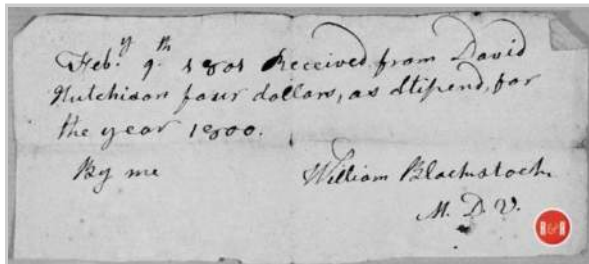 Feb.y 9.th 1801 Received from David
Hutchison four dollars, as stipend, for
the year 1800.
By me
William Blackstock
M. D. V.
R&R